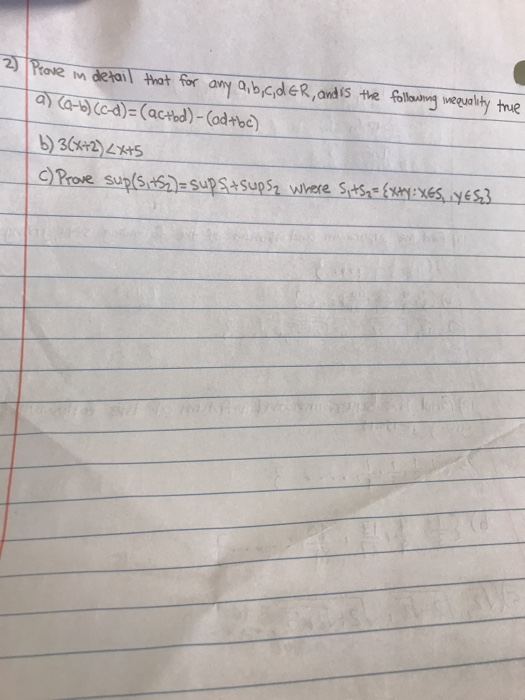 2) Prove in detail that for any a,b,c,d ∈ R, and is the following inequality true
a) (a-b)(c-d)=(ac+bd)-(ad+bc)
b) 3(x+2)<x+5
c) Prove sup(S₁+S₂)=supS₁+supS₂ where S₁+S₂={x+y:x∈S₁,y∈S₂}